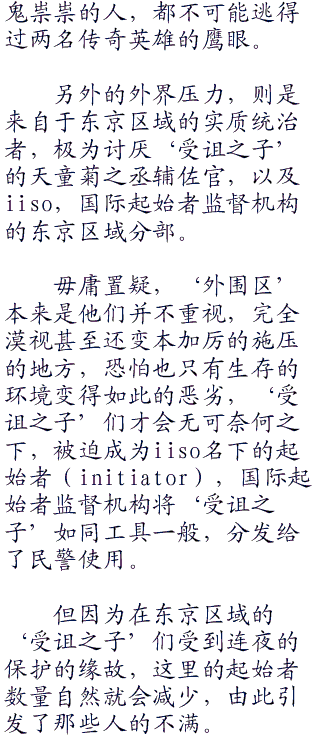 鬼祟祟的人，都不可能逃得
过两名传奇英雄的鹰眼。
另外的外界压力，则是
来自于东京区域的实质统治
者，极为讨厌‘受诅之子’
的天童菊之丞辅佐官，以及
iiso，国际起始者监督机构
的东京区域分部。
毋庸置疑，‘外围区’
本来是他们并不重视，完全
漠视甚至还变本加厉的施压
的地方，恐怕也只有生存的
环境变得如此的恶劣，‘受
诅之子’们才会无可奈何之
下，被迫成为iiso名下的起
始者（initiator），国际起
始者监督机构将‘受诅之
子’如同工具一般，分发给
了民警使用。
但因为在东京区域的
‘受诅之子’们受到连夜的
保护的缘故，这里的起始者
数量自然就会减少，由此引
发了那些人的不满。